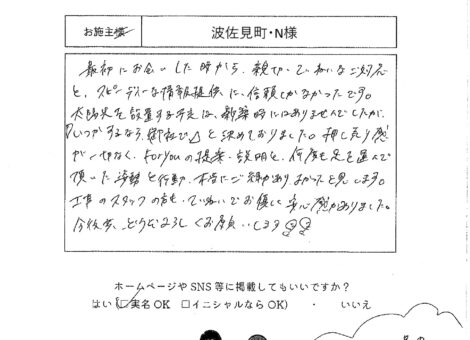 お施主様 波佐見町・N様
最初にお会いした時から、親切・ていねいなご対応
と、スピーディーな情報提供に、信頼しかなかったです。
太陽光を設置する予定は、新築時にはありませんでしたが、
『いつかするなら、御社で』と決めておりました。押し売り感
が一切なく、For youの提案・説明と、何度も足を運んで
頂いた姿勢と行動、本当にご縁があり、よかったと思います。
工事のスタッフの方も、ていねいでお優しく、安心感がありました。
今後共、どうぞよろしくお願いします
ホームページやSNS等に掲載してもいいですか?
はい(☑実名OK □イニシャルならOK) ・ いいえ